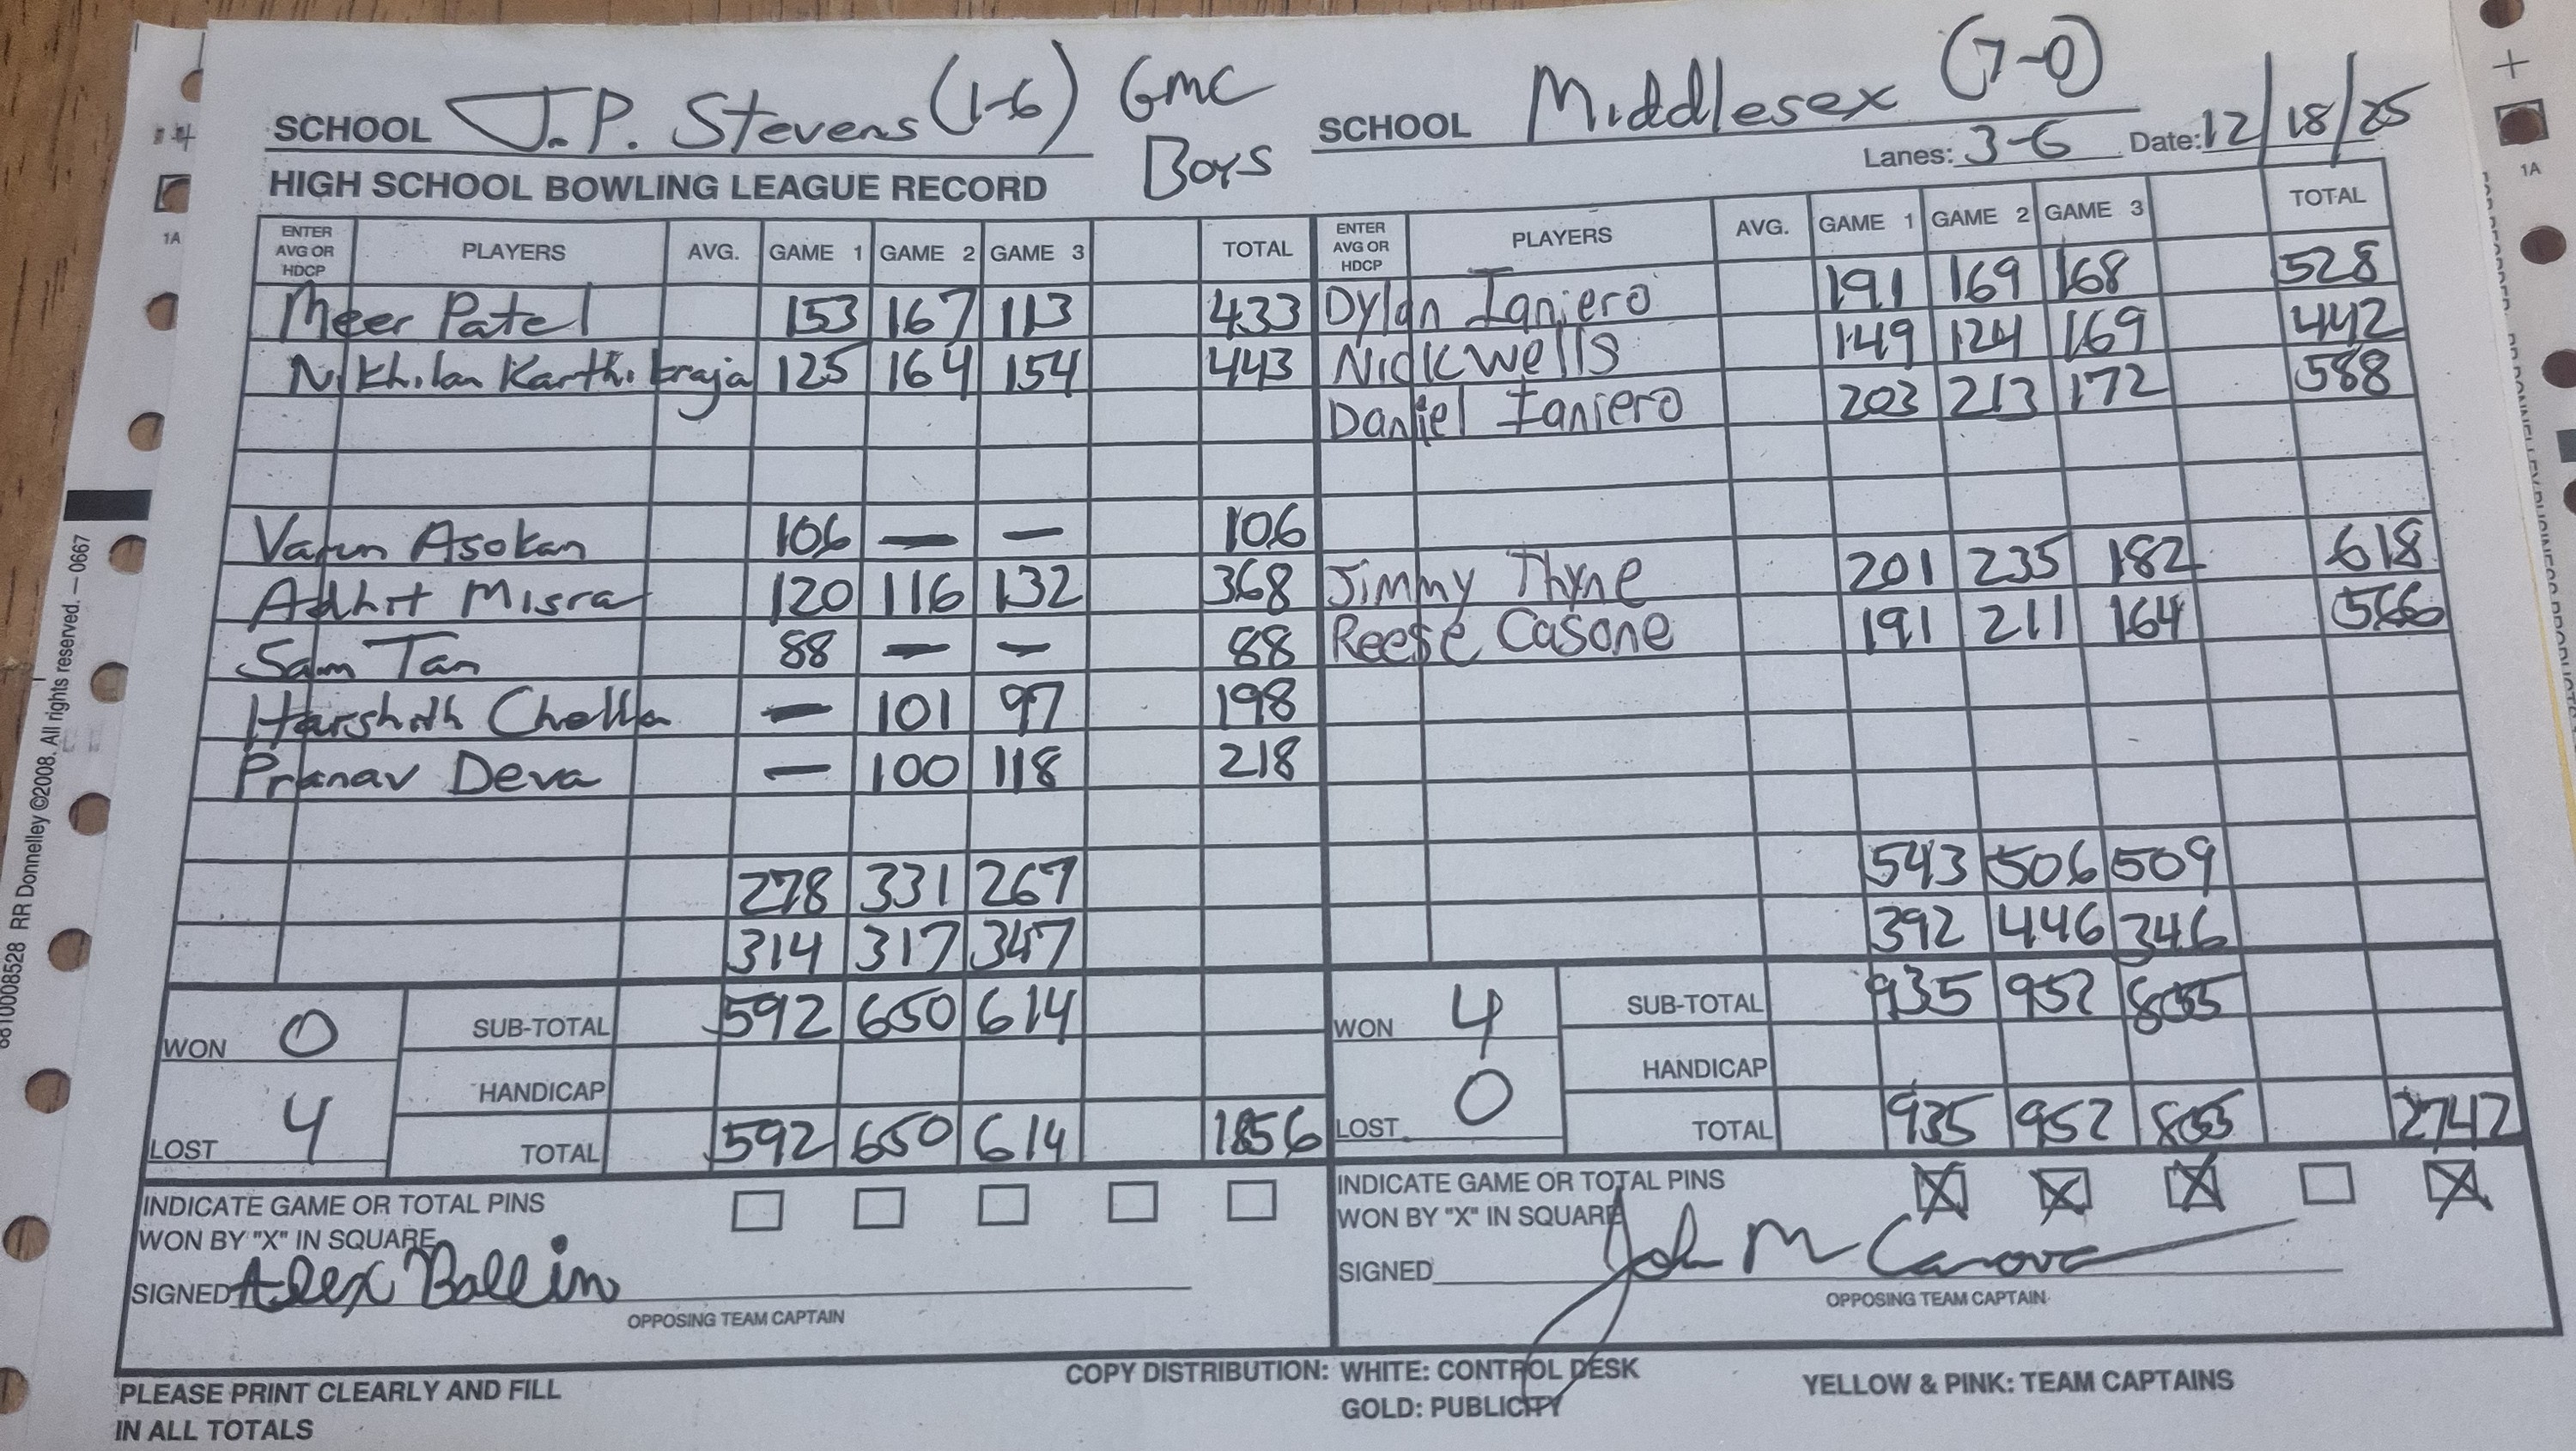 SCHOOL J.P. Stevens (1-6) GMC Boys
SCHOOL Middlesex (7-0)
Lanes: 3-6 Date: 12/18/25
HIGH SCHOOL BOWLING LEAGUE RECORD
ENTER AVG OR HDCP PLAYERS AVG. GAME 1 GAME 2 GAME 3 TOTAL
Meer Patel 153 167 113 433
Nikhilan Karthikraja 125 164 154 443
Varun Asokan 106 — — 106
Adhrit Misra 120 116 132 368
Sam Tan 88 — — 88
Harshith Chella — 101 97 198
Pranav Deva — 100 118 218
278 331 267
314 317 347
WON 0
LOST 4
SUB-TOTAL 592 650 614
HANDICAP
TOTAL 592 650 614 1856
INDICATE GAME OR TOTAL PINS
WON BY "X" IN SQUARE
SIGNED Alex Ballin
OPPOSING TEAM CAPTAIN
ENTER AVG OR HDCP PLAYERS AVG. GAME 1 GAME 2 GAME 3 TOTAL
Dylan Ianiero 191 169 168 528
Nick Wells 149 124 169 442
Daniel Ianiero 203 213 172 588
Jimmy Thyne 201 235 182 618
Reese Casone 191 211 164 566
543 506 509
392 446 346
WON 4
LOST 0
SUB-TOTAL 935 952 855
HANDICAP
TOTAL 935 952 855 2742
INDICATE GAME OR TOTAL PINS
WON BY "X" IN SQUARE X X X X
SIGNED John M Canova
OPPOSING TEAM CAPTAIN
PLEASE PRINT CLEARLY AND FILL
IN ALL TOTALS
COPY DISTRIBUTION: WHITE: CONTROL DESK
GOLD: PUBLICITY
YELLOW & PINK: TEAM CAPTAINS
RR Donnelley ©2008. All rights reserved. — 0667
1A
1A